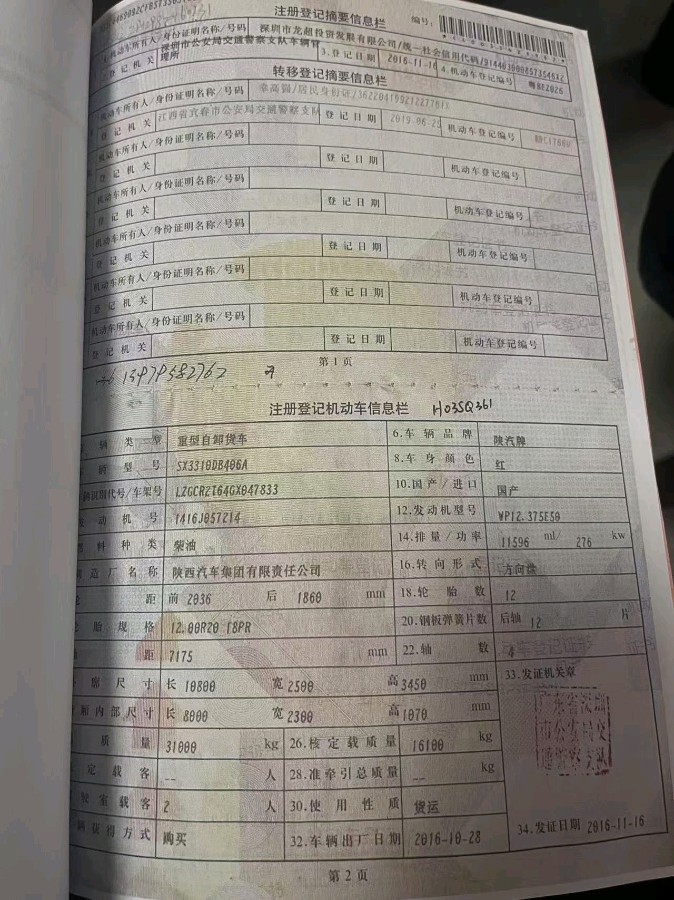 注册登记摘要信息栏 编号:
机动车所有人/身份证明名称/号码 深圳市龙超投资发展有限公司/统一社会信用代码/
登记机关 深圳市公安局交通警察支队车辆管理所 3.登记日期 2016-11-16 4.机动车登记编号
转移登记摘要信息栏
机动车所有人/身份证明名称/号码
登记机关 江西省宜春市公安局交通警察支队 登记日期 机动车登记编号
机动车所有人/身份证明名称/号码
登记机关 登记日期 机动车登记编号
机动车所有人/身份证明名称/号码
登记机关 登记日期 机动车登记编号
机动车所有人/身份证明名称/号码
登记机关 登记日期 机动车登记编号
机动车所有人/身份证明名称/号码
登记机关 登记日期 机动车登记编号
机动车所有人/身份证明名称/号码
登记机关 登记日期 机动车登记编号
第1页
13979582762
注册登记机动车信息栏 H03SQ361
辆类型 重型自卸货车 6.车辆品牌 陕汽牌
辆型号 SX3310DB406A 8.车身颜色 红
辆识别代号/车架号 LZGCR2T64GX047833 10.国产/进口 国产
发动机号 1416J057214 12.发动机型号 WP12.375E50
燃料种类 柴油 14.排量/功率 11596 ml/ 276 kw
制造厂名称 陕西汽车集团有限责任公司 16.转向形式 方向盘
距 前 2036 后 1860 mm 18.轮胎数 12
胎规格 12.00R20 18PR 20.钢板弹簧片数 后轴 12 片
距 7175 mm 22.轴数 4
廓尺寸 长 10800 宽 2500 高 3450 mm 33.发证机关章
厢内部尺寸 长 8000 宽 2300 高 1070 mm
质量 31000 kg 26.核定载质量 16100 kg
定载客 -- 人 28.准牵引总质量 -- kg
驶室载客 2 人 30.使用性质 货运
辆获得方式 购买 32.车辆出厂日期 2016-10-28 34.发证日期 2016-11-16
第2页